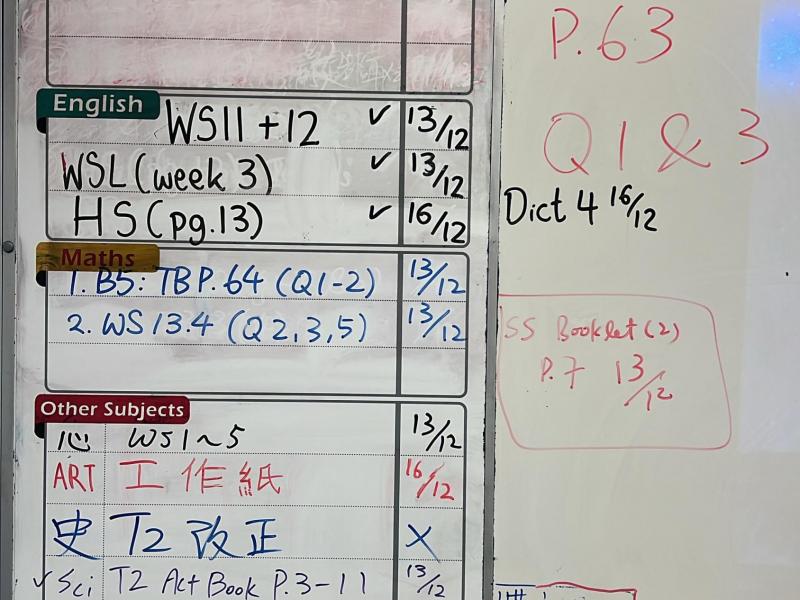 P.63
Q1 & 3
English
WS11+12 ✓ 13/12
WSL(week 3) ✓ 13/12
HS(pg.13) ✓ 16/12
Dict 4 16/12
Maths
1. B5: TB P.64 (Q1-2) 13/12
2. WS 13.4 (Q2,3,5) 13/12
SS Booklet(2)
P.7 13/12
Other Subjects
心 WS1~5 13/12
ART 工作紙 16/12
史 T2 改正 X
✓ Sci T2 Act Book P.3-11 13/12